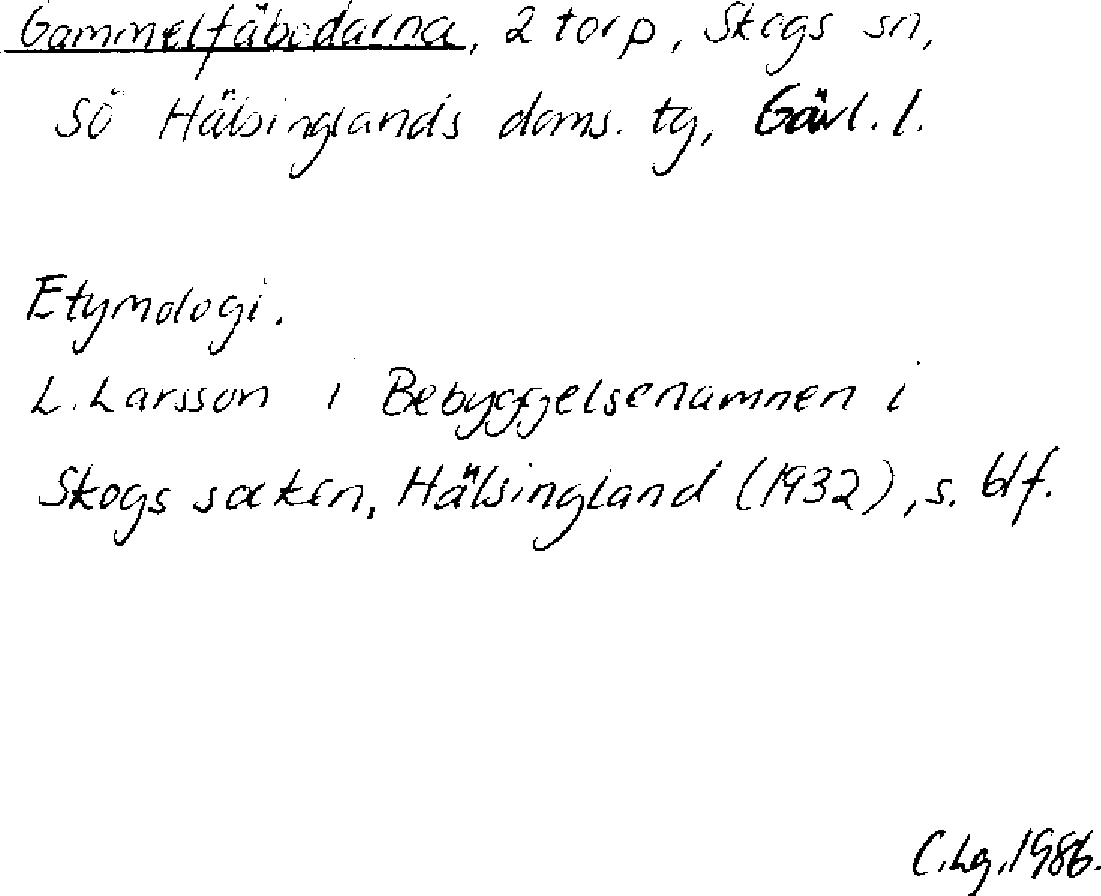 Gammelfäbodarna, 2 torp, Skogs sn,
Sö Hälsinglands doms. tg, Gävl. l.
Etymologi.
L. Larsson i Bebyggelsenamnen i
Skogs socken, Hälsingland (1932), s. 61f.
C.Lg.1986.